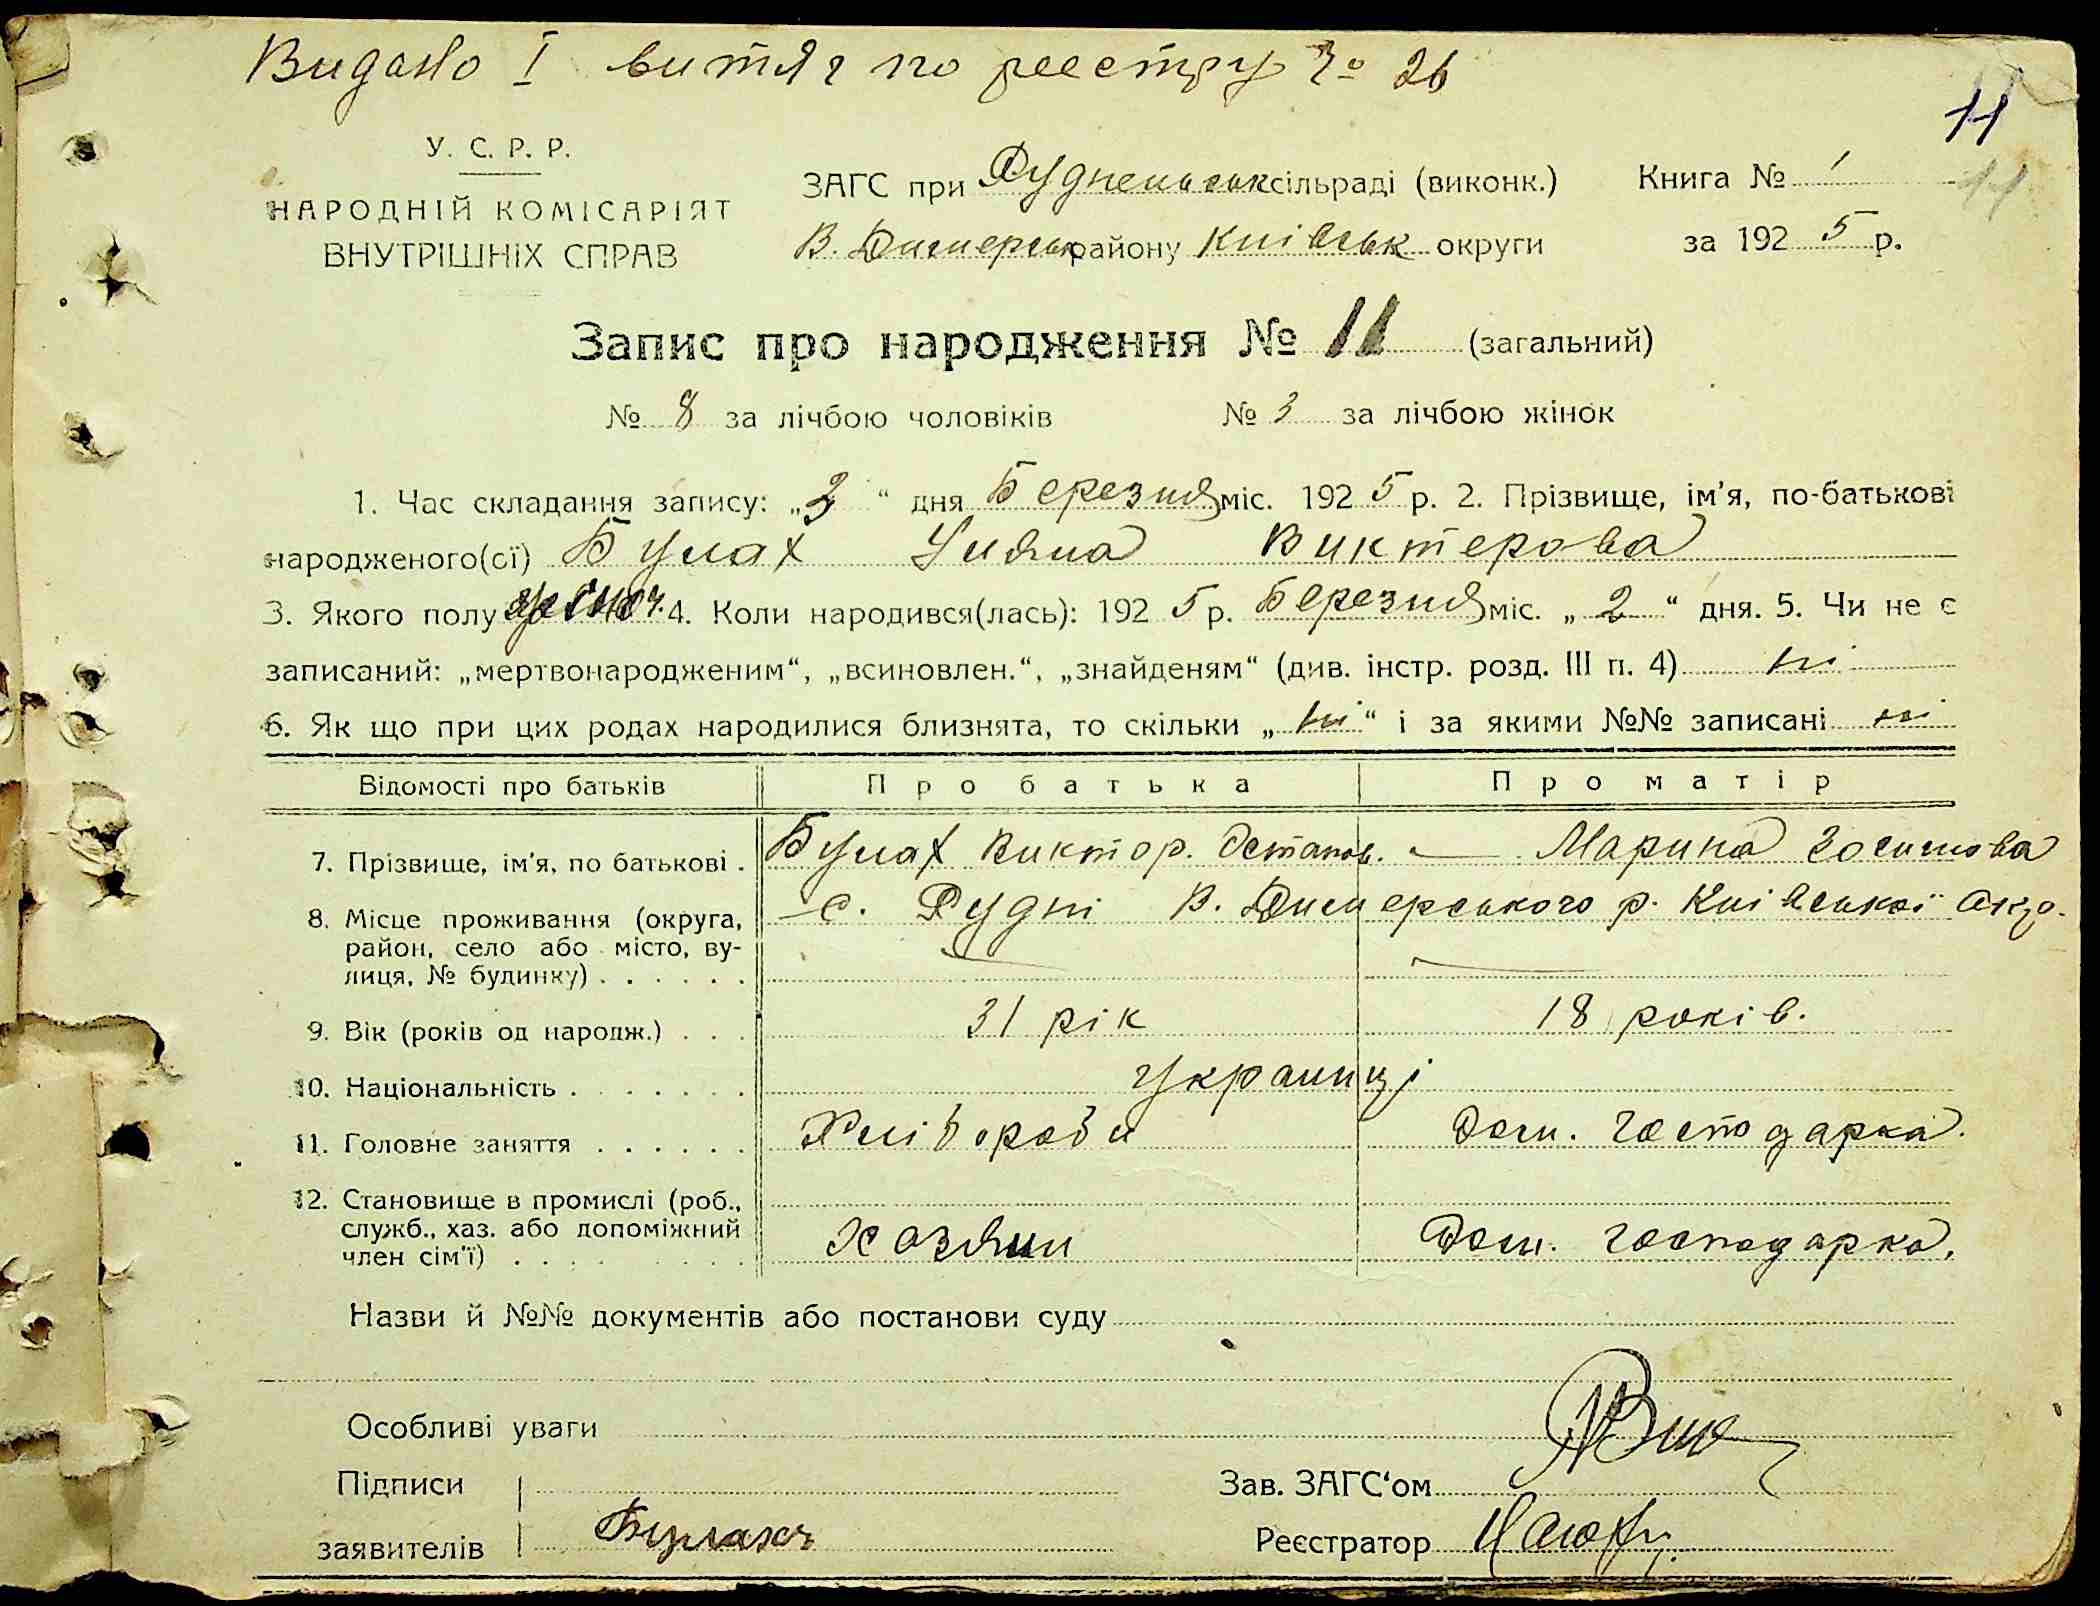 Видано I витяг по реестру № 26
11
11
У. С. Р. Р.
НАРОДНІЙ КОМІСАРІЯТ
ВНУТРІШНІХ СПРАВ
ЗАГС при Рудненськ сільраді (виконк.)
В. Димерськ району Київськ округи
Книга № 1
за 1925 р.
Запис про народження № 11 (загальний)
№ 8 за лічбою чоловіків № 3 за лічбою жінок
1. Час складання запису: „2“ дня Березня міс. 1925 р. 2. Прізвище, ім'я, по-батькові
народженого(сї) Булах Уляна Виктерова
3. Якого полу жіноч. 4. Коли народився(лась): 1925 р. Березня міс. „2“ дня. 5. Чи не є
записаний: „мертвонародженим“, „всиновлен.“, „знайденям“ (див. інстр. розд. III п. 4) ні
6. Як що при цих родах народилися близнята, то скільки „ні“ і за якими №№ записані ні
Відомості про батьків Про батька Про матір
7. Прізвище, ім'я, по батькові . Булах Виктор. Остапов. — Марина Зосимова
8. Місце проживання (округа, с. Рудні В. Димерського р. Київської Окр.
район, село або місто, ву-
лиця, № будинку) . . . . . .
9. Вік (років од народж.) . . . 31 рік 18 років.
10. Національність . . . . . . . украинці
11. Головне заняття . . . . . . Хліборов Дом. господарка.
12. Становище в промислі (роб.,
служб., хаз. або допоміжний Хозяин Дом. господарка.
член сім'ї) . . . . . . . .
Назви й №№ документів або постанови суду
Особливі уваги
Підписи Зав. ЗАГС‘ом
заявителів Булахъ Реєстратор